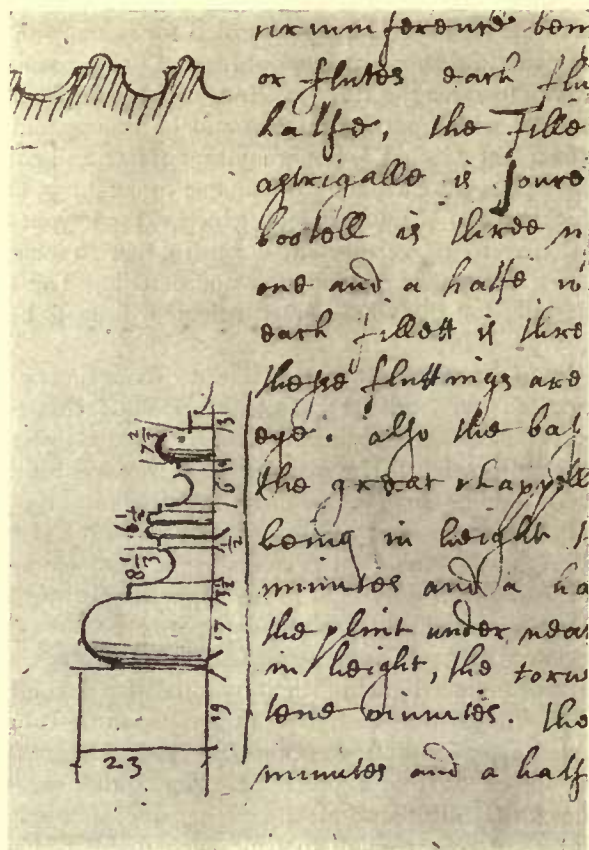 circumference bein
or flutes each flu
halfe, the Fille
astrigalle is foure
bootell is three m
one and a halfe
each fillett is thre
these fluttings are
eye. also the bas
the great chappell
being in height t
minutes and a ha
the plint under neat
in height, the torus
tene minutes. the
minutes and a half
23